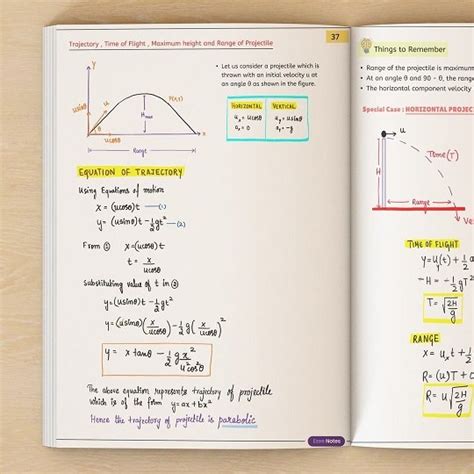 Trajectory , Time of Flight , Maximum height and Range of Projectile
37
y
usinθ
u
P(x,t)
Hmax
θ
ucosθ
x
Range
• Let us consider a projectile which is
thrown with an initial velocity u at
an angle θ as shown in the figure.
HORIZONTAL VERTICAL
uₓ = ucosθ uᵧ = usinθ
aₓ = 0 aᵧ = -g
EQUATION OF TRAJECTORY
Using Equations of motion
x = (ucosθ)t —(1)
y = (usinθ)t - 1/2 gt² —(2)
From ① x = (ucosθ)t
t = x/ucosθ
Substituting value of t in ②
y = (usinθ)t - 1/2 gt²
y = (usinθ)(x/ucosθ) - 1/2 g(x/ucosθ)²
y = x tanθ - 1/2 g x²/u²cos²θ
The above equation represents trajectory of projectile
which is of the form y = ax + bx²
Hence the trajectory of projectile is parabolic
Notes
Things to Remember
• Range of the projectile is maximum
• At an angle θ and 90 - θ, the range
• The horizontal component velocity
Special Case : HORIZONTAL PROJECT
u
Time(T)
H
Range
TIME OF FLIGHT
y = uᵧ(t) + 1/2 a
-H = -1/2 gT²
T = √2H/g
RANGE
x = uₓt + 1/2
R = (u)T +
R = u√2H/g